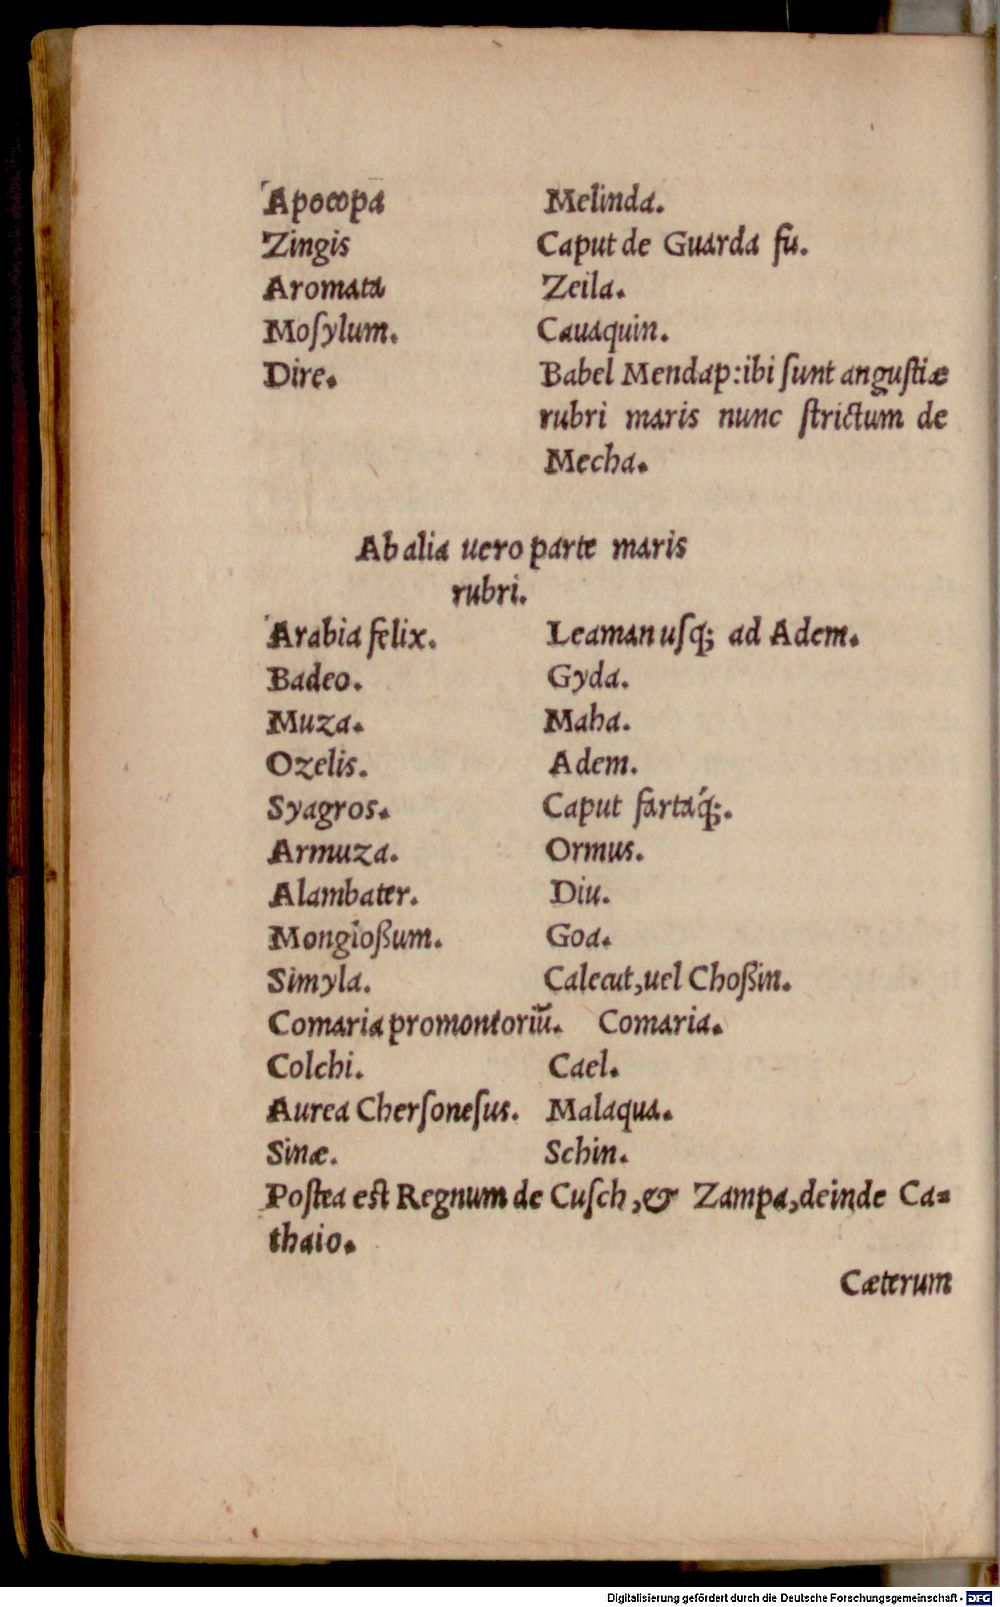 Apocopa Melinda.
Zingis Caput de Guarda fu.
Aromata Zeila.
Moſylum. Cauaquin.
Dire. Babel Mendap: ibi ſunt anguſtiæ
rubri maris nunc ſtrictum de
Mecha.
Ab alia uero parte maris
rubri.
Arabia felix. Leaman uſq; ad Adem.
Badeo. Gyda.
Muza. Maha.
Ozelis. Adem.
Syagros. Caput fartaq́;.
Armuza. Ormus.
Alambater. Diu.
Mongioßum. Goa.
Simyla. Calecut, uel Choßin.
Comaria promontoriũ. Comaria.
Colchi. Cael.
Aurea Cherſoneſus. Malaqua.
Sinæ. Schin.
Poſtea est Regnum de Cuſch, & Zampa, deinde Ca=
thaio.
Cæterum
Digitalisierung gefördert durch die Deutsche Forschungsgemeinschaft - DFG